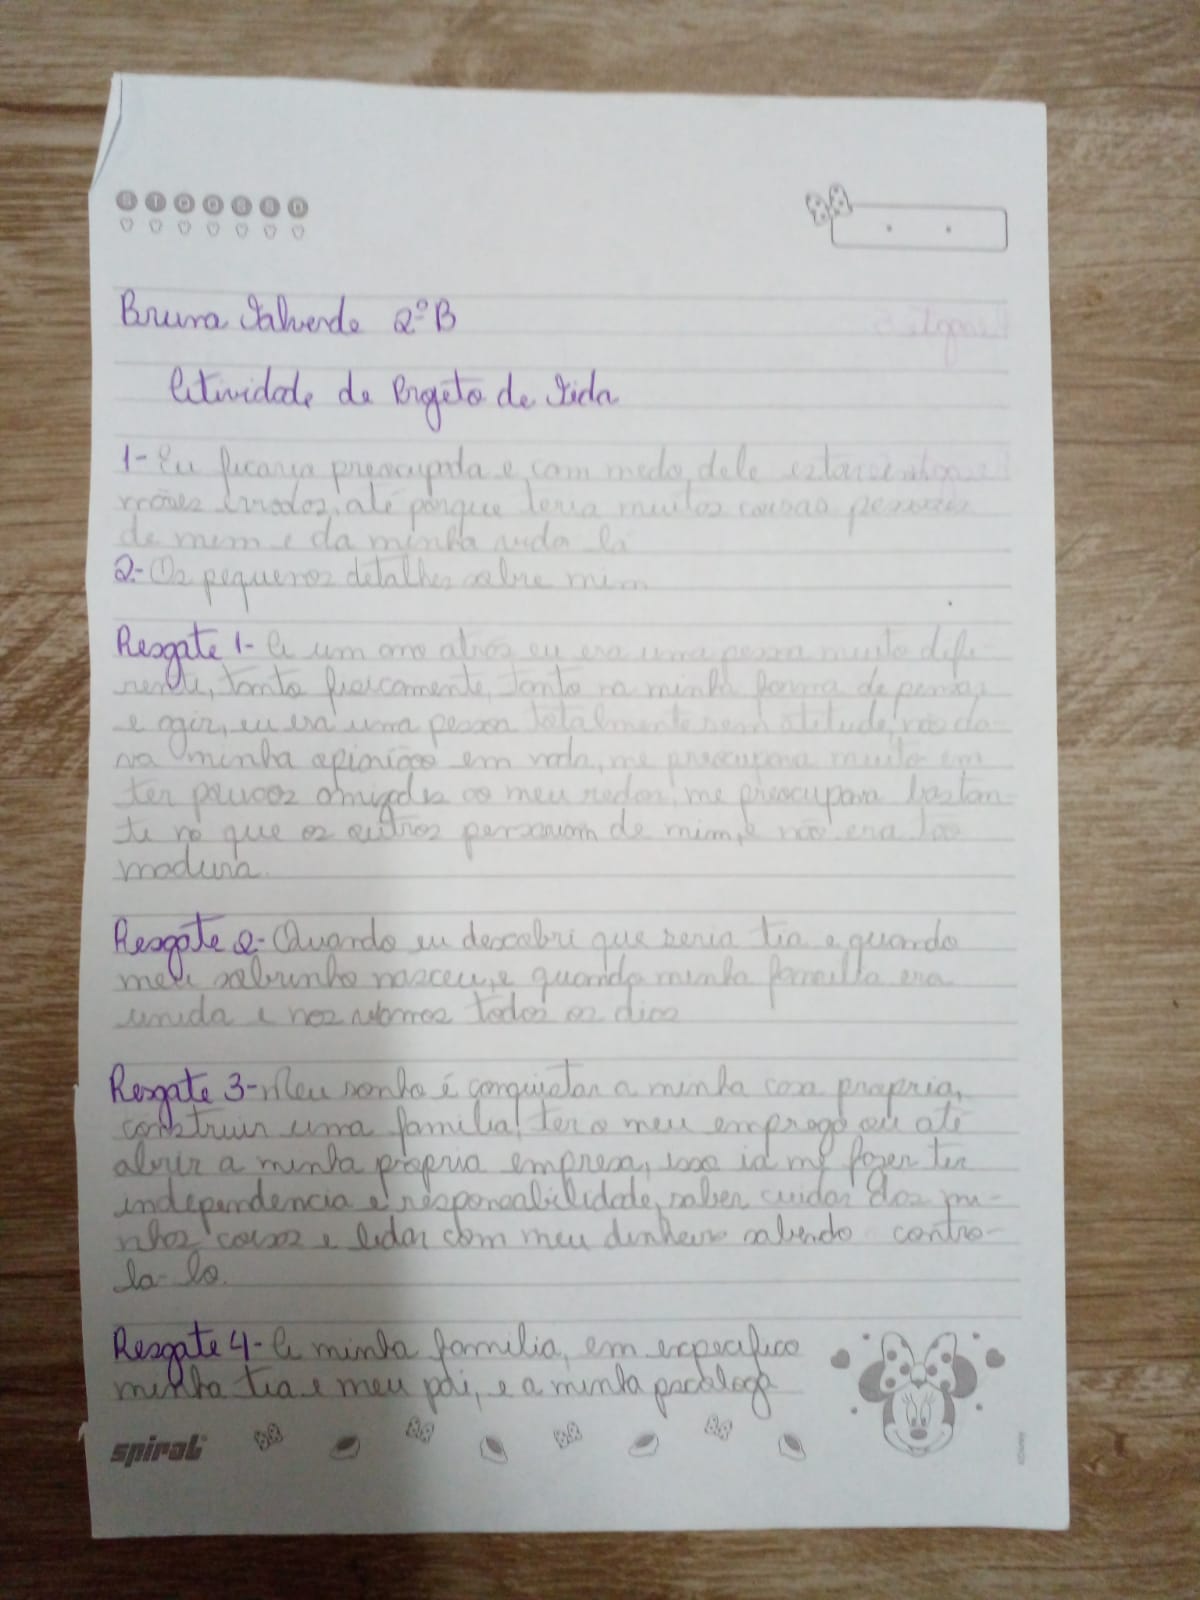 S T Q Q S S D
Bruna Valverde 2º B
Atividade de Projeto de Vida
1- Eu ficaria preocupada e com medo dele estar em
mãos erradas, até porque teria muitas coisas pessoais
de mim e da minha vida lá
2- Os pequenos detalhes sobre mim
Resgate 1- A um ano atrás eu era uma pessoa muito dife-
rente, tanto fisicamente, tanto na minha forma de pensar
e agir, eu era uma pessoa totalmente sem atitude, não da-
va minha opinião em nada, me preocupava muito em
ter poucos amigos ao meu redor, me preocupava bastan-
te no que os outros pensavam de mim, e não era tão
madura.
Resgate 2- Quando eu descobri que seria tia e quando
meu sobrinho nasceu, e quando minha familia era
unida e nos viamos todos os dias
Resgate 3- Meu sonho é conquistar a minha casa propria,
construir uma familia, ter o meu emprego ou até
abrir a minha própria empresa, isso ia me fazer ter
independencia e responsabilidade, saber cuidar das mi-
nhas coisas e lidar com meu dinheiro sabendo contro-
la-lo.
Resgate 4- A minha familia, em especifico
minha tia e meu pai, e a minha psicologa
spiral
©Disney